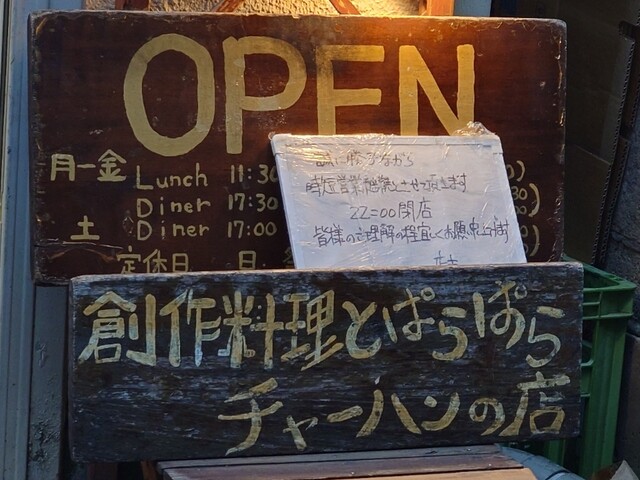 OPEN
月ー金 Lunch 11:30
Diner 17:30 30)
土 Diner 17:00
定休日 日
誠に勝手ながら
時短営業継続とさせて頂きます
22:00閉店
皆様のご理解の程宜しくお願い申し上げます
店主
創作料理とぱらぱら
チャーハンの店